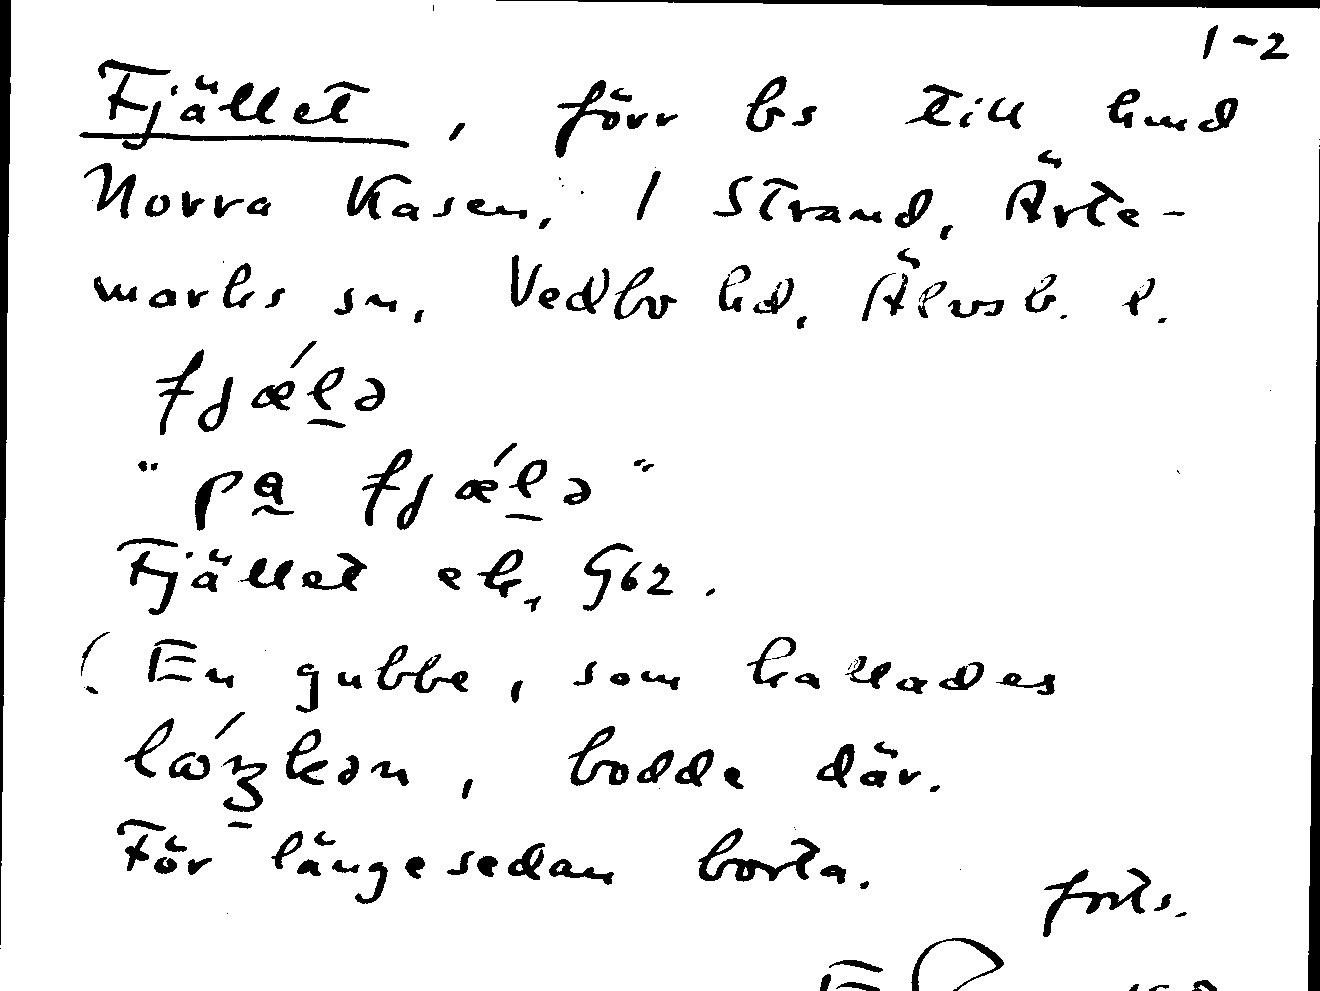 1-2
Fjället, förr bs till hmd
Norra Kasen, 1 Strand, Ärte-
marks sn, Vedbo hd, Älvsb. l.
fjǽl̲ə
"pa̰ fjǽl̲ə"
Fjället ek, G62.
(En gubbe, som kallades
, bodde där.
För längesedan borta.
forts.